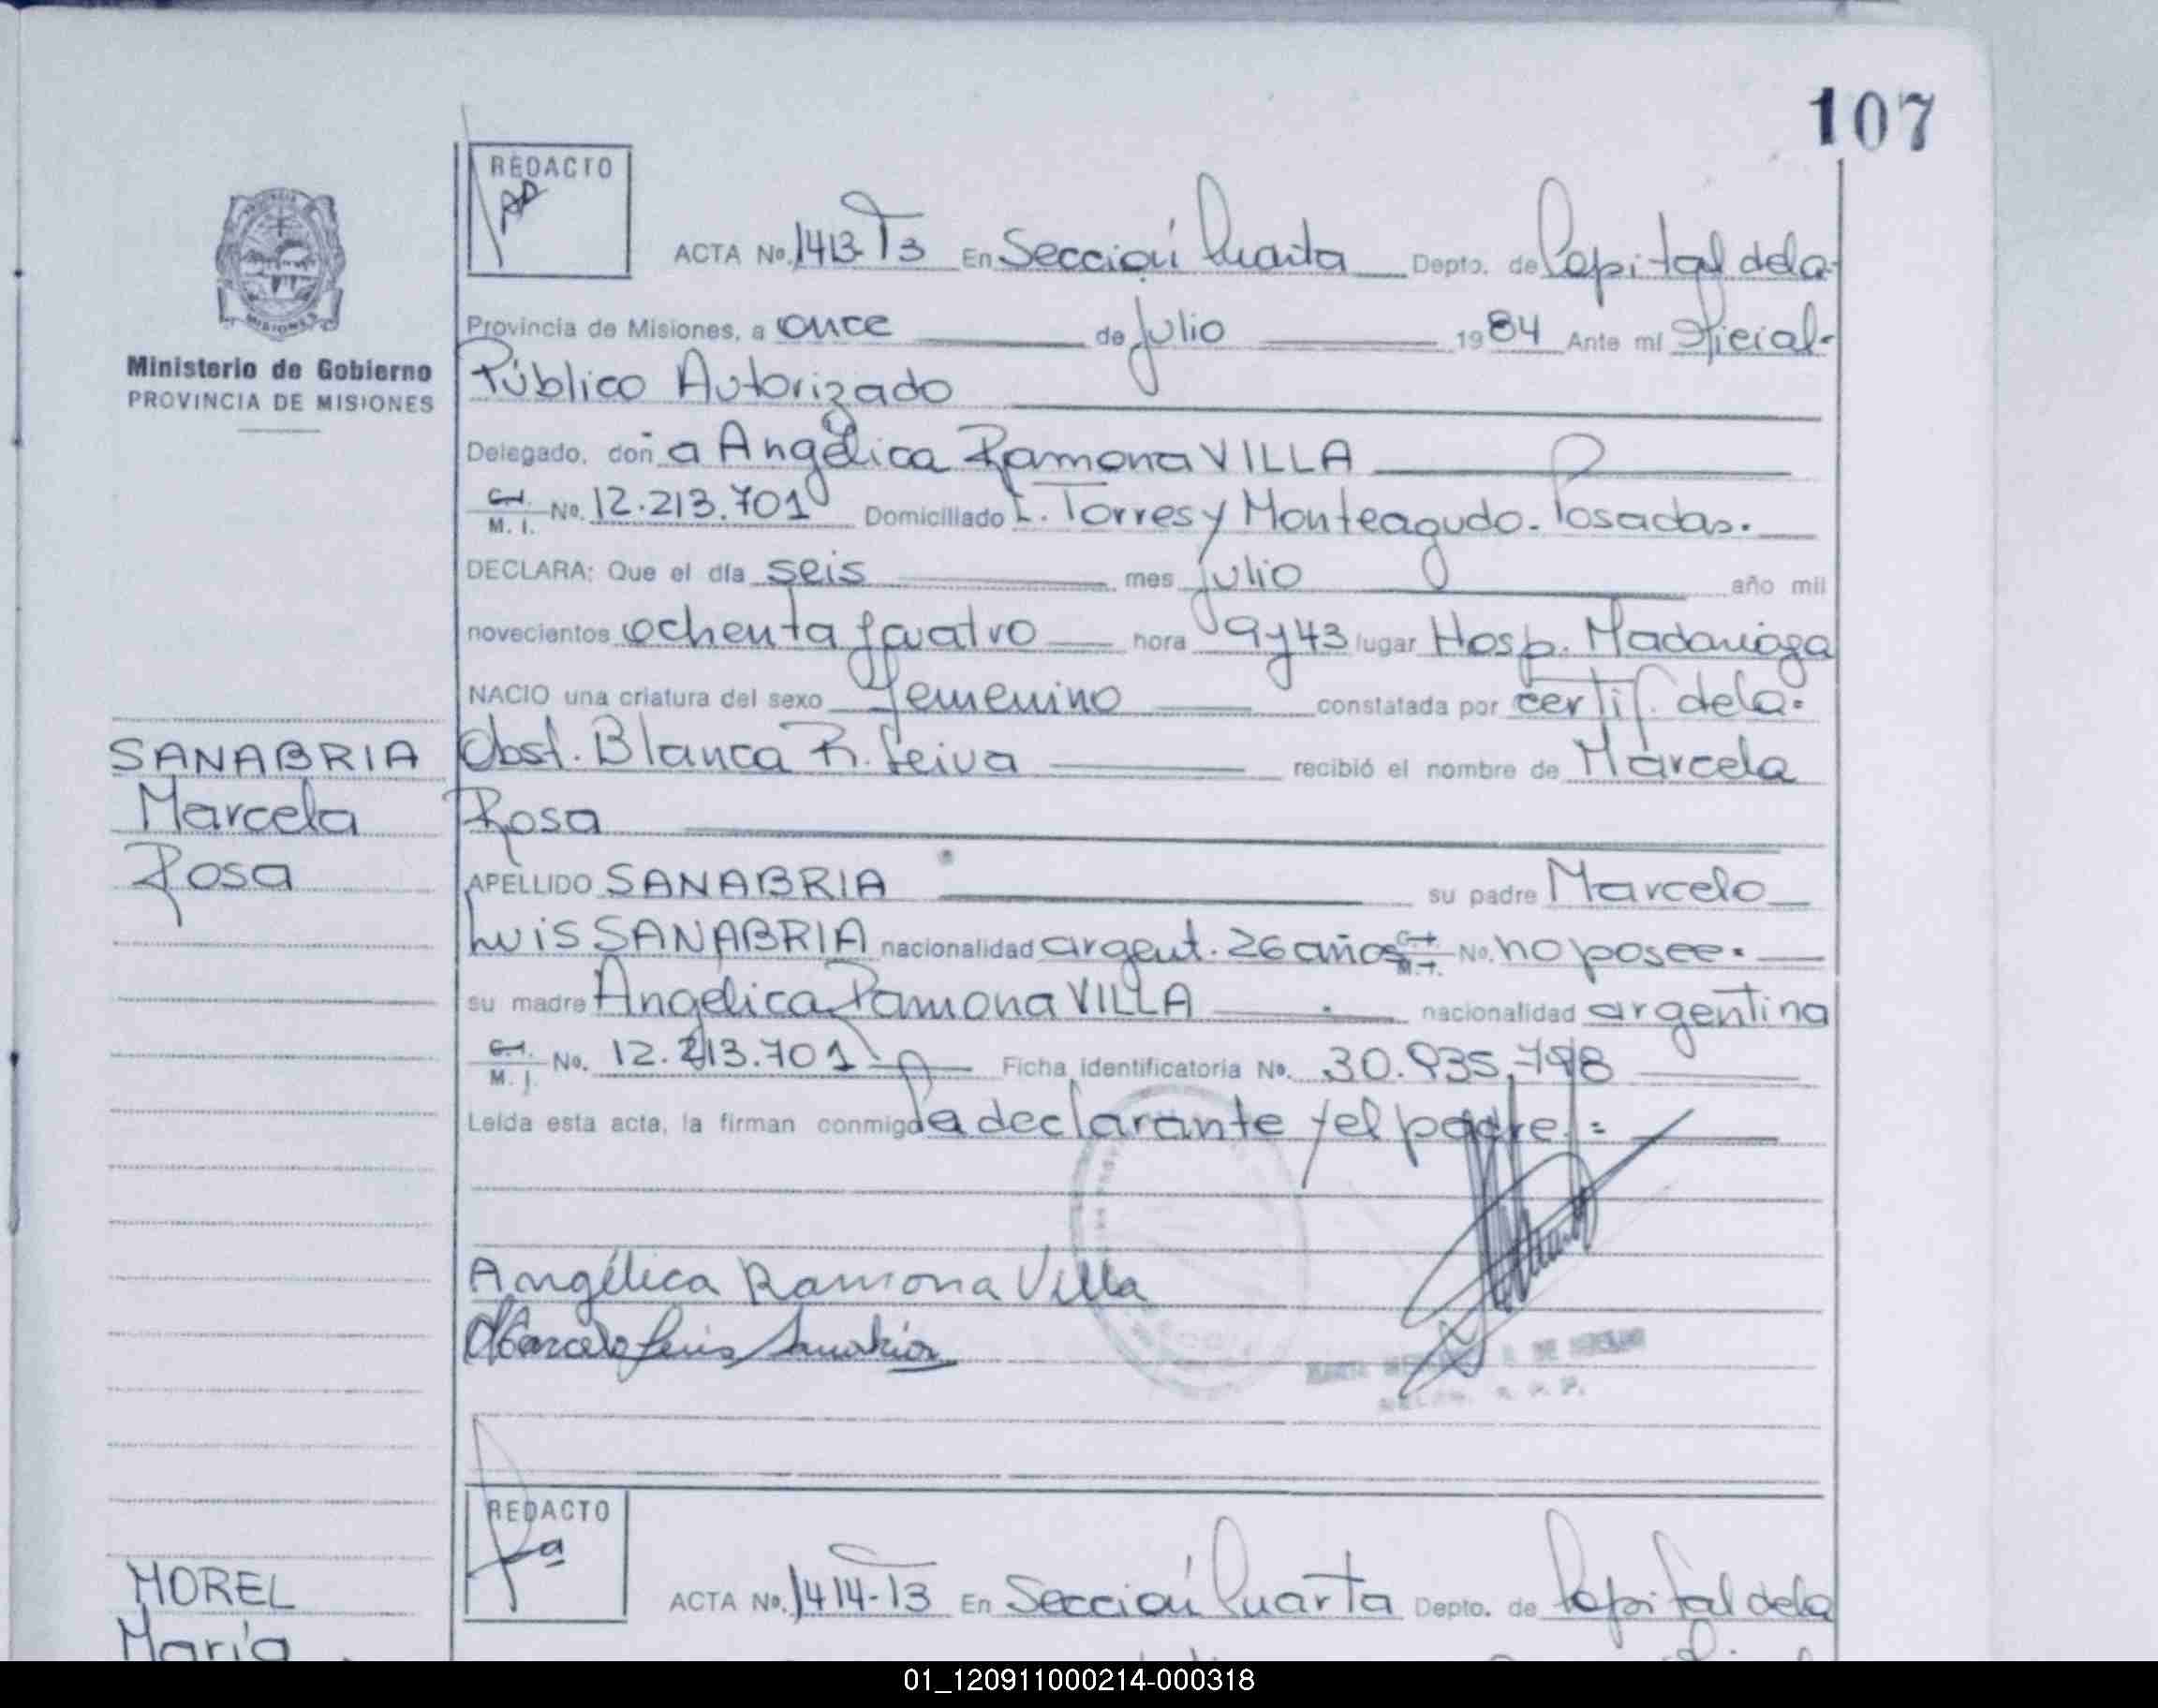 107
REDACTO
ACTA No. 1413-T3 En Sección Cuarta Depto. de Capital de la-
Provincia de Misiones, a once de julio 1984 Ante mí Oficial-
Ministerio de Gobierno
PROVINCIA DE MISIONES
Público Autorizado
Delegado, don a Angélica Ramona VILLA
C.I. M. I. No. 12.213.701 Domiciliado L. Torres y Monteagudo - Posadas.
DECLARA: Que el día seis mes julio año mil
novecientos ochenta y cuatro hora 9 y 43 lugar Hosp. Madariaga
NACIO una criatura del sexo femenino constatada por certif. de la=
Obst. Blanca R. Leiva recibió el nombre de Marcela
Rosa
SANABRIA
Marcela
Rosa
APELLIDO SANABRIA su padre Marcelo
Luis SANABRIA nacionalidad argent. 26 años C.I. M.I. No. no posee.
su madre Angélica Ramona VILLA nacionalidad argentina
C.I. M. I. No. 12.213.701 Ficha identificatoria No. 30.935.798
Leída esta acta, la firman conmigo la declarante y el padre.=
Angélica Ramona Villa
Marcelo Luis Sanabria
REDACTO
ACTA No. 1414-T3 En Sección Cuarta Depto. de Capital de la
MOREL
María
01_120911000214-000318